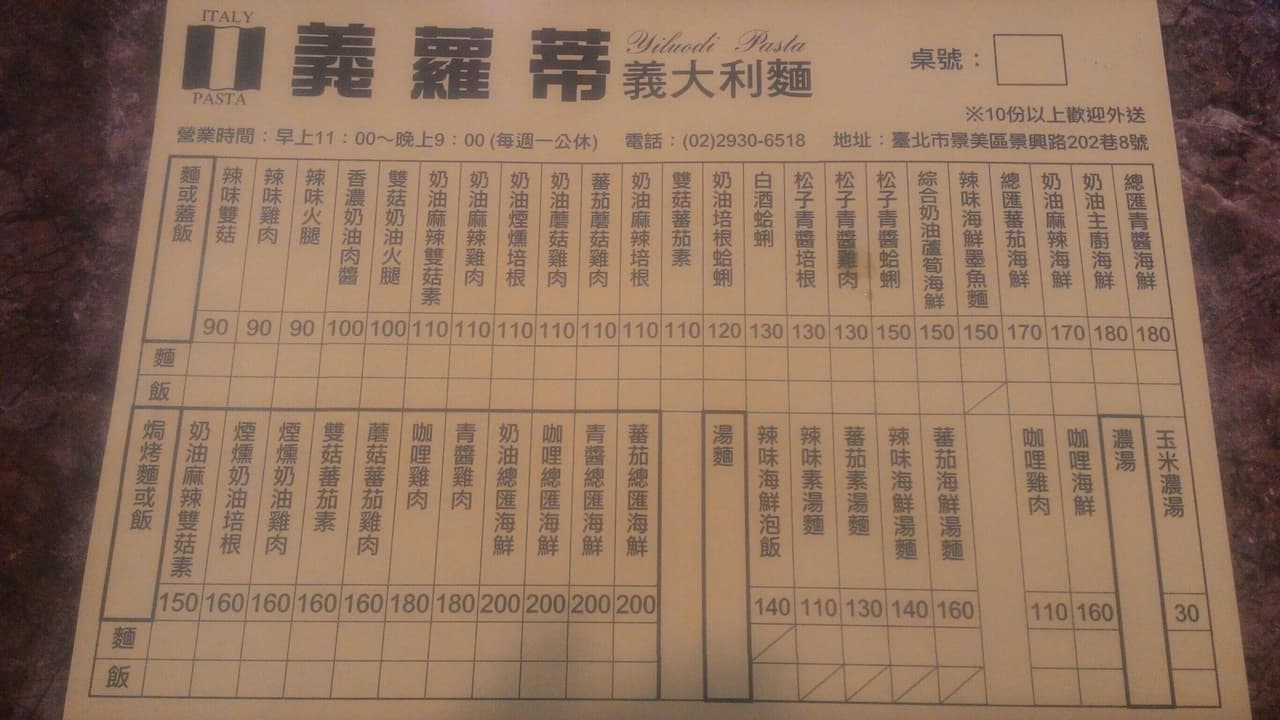 ITALY
PASTA
義蘿蒂
Yiluodi Pasta
義大利麵
桌號：
※10份以上歡迎外送
營業時間：早上11：00～晚上9：00 (每週一公休)
電話：(02)2930-6518
地址：臺北市景美區景興路202巷8號
麵或蓋飯
辣味雙菇 90
辣味雞肉 90
辣味火腿 90
香濃奶油肉醬 100
雙菇奶油火腿 100
奶油麻辣雙菇素 110
奶油麻辣雞肉 110
奶油煙燻培根 110
奶油蘑菇雞肉 110
蕃茄蘑菇雞肉 110
奶油麻辣培根 110
雙菇蕃茄素 110
奶油培根蛤蜊 120
白酒蛤蜊 130
松子青醬培根 130
松子青醬雞肉 130
松子青醬蛤蜊 150
綜合奶油蘆筍海鮮 150
辣味海鮮墨魚麵 150
總匯蕃茄海鮮 170
奶油麻辣海鮮 170
奶油主廚海鮮 180
總匯青醬海鮮 180
麵
飯
焗烤麵或飯
奶油麻辣雙菇素 150
煙燻奶油培根 160
煙燻奶油雞肉 160
雙菇蕃茄素 160
蘑菇蕃茄雞肉 160
咖哩雞肉 180
青醬雞肉 180
奶油總匯海鮮 200
咖哩總匯海鮮 200
青醬總匯海鮮 200
蕃茄總匯海鮮 200
湯麵
辣味海鮮泡飯 140
辣味素湯麵 110
蕃茄素湯麵 130
辣味海鮮湯麵 140
蕃茄海鮮湯麵 160
咖哩雞肉 110
咖哩海鮮 160
濃湯
玉米濃湯 30
麵
飯